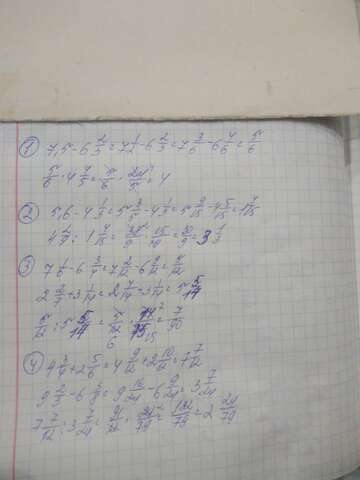 1) 7,5-6 2/3=7 1/2-6 2/3=7 3/6-6 4/6=5/6
5/6·4 4/5=5/6·24/5=4
2) 5,6-4 1/3=5 3/5-4 1/3=5 9/15-4 5/15=1 4/15
4 2/9:1 4/15=38/9·15/19=30/9=3 1/3
3) 7 1/6-6 3/4=7 2/12-6 9/12=5/12
2 2/7+3 1/14=2 4/14+3 1/14=5 5/14
5/12:5 5/14=5/12·14/75=7/90
4) 4 3/4+2 5/6=4 9/12+2 10/12=7 7/12
9 2/3-6 3/8=9 16/24-6 9/24=3 7/24
7 7/12:3 7/24=91/12·24/79=182/79=2 24/79